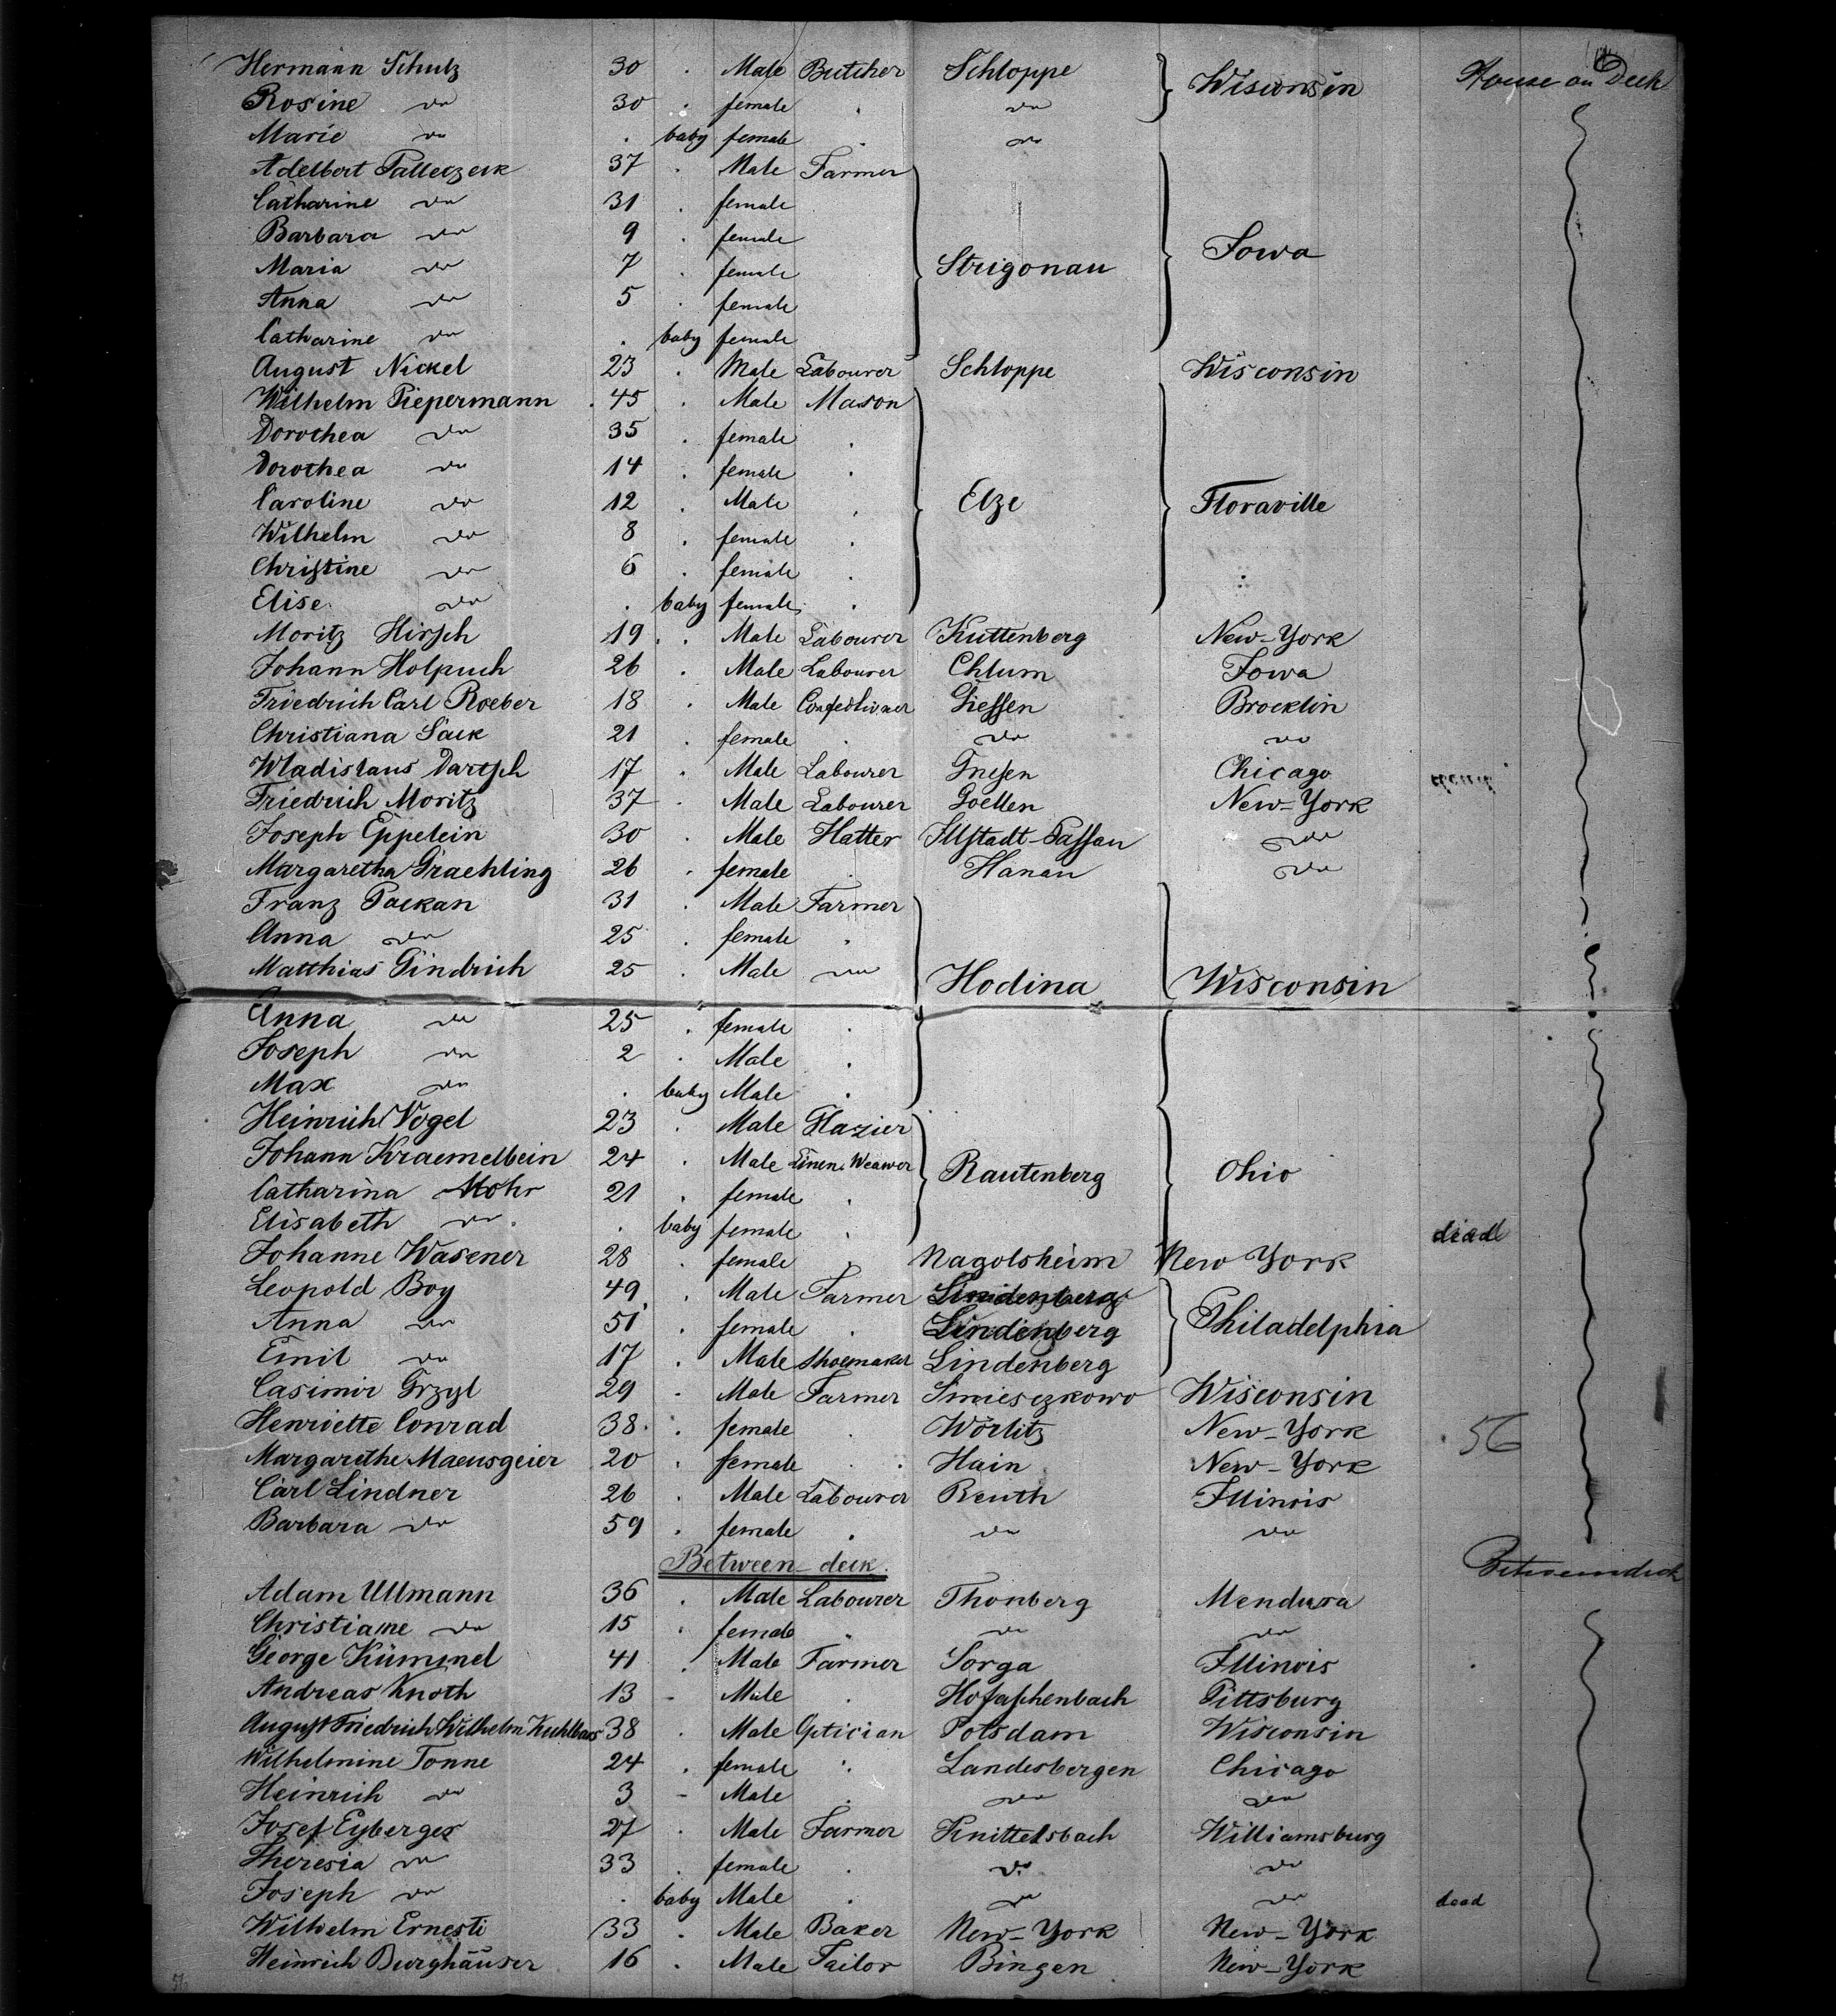 Hermann Schulz 30 . Male Butcher Schloppe Wisconsin House on Deck
Rosine do 30 . female . do
Marie do . baby female . do
Adelbert 37 . Male Farmer
Catharine do 31 . female
Barbara do 9 . female
Maria do 7 . female Strigonau Iowa
Anna do 5 . female
Catharine do . baby female
August Nickel 23 . Male Labourer Schloppe Wisconsin
Wilhelm Piepermann . 45 . Male Mason
Dorothea do 35 . female .
Dorothea do 14 . female .
Caroline do 12 . Male . Elze Floraville
Wilhelm do 8 . female .
Christine do 6 . female .
Elise do . baby female .
Moritz Hirsch 19 . . Male Labourer Kuttenberg New-York
Johann Holpuch 26 . Male Labourer Chlum Iowa
Friedrich Carl Roeber 18 . Male Confectioner Giessen Brocklin
Christiana Sack 21 . female . do do
Wladislaus Dartsch 17 . Male Labourer Gnesen Chicago
Friedrich Moritz 37 . Male Labourer Goellen New-York
Joseph Eppelein 30 . Male Hatter Illstadt-Passau do
Margaretha Graehling 26 . female . Hanau do
Franz Packan 31 . Male Farmer
Anna do 25 . female .
Matthias Gindrich 25 . Male do Hodina Wisconsin
Anna do 25 . female .
Joseph do 2 . Male .
Max do . baby Male .
Heinrich Vogel 23 . Male Glazier
Johann Kraemelbein 24 . Male Linen Weawer Rautenberg Ohio
Catharina Mohr 21 . female .
Elisabeth do . . baby female . diad
Johanne Wasener 28 . female . Nagolsheim New York
Leopold Boy 49 . Male Farmer Lindenberg
Anna do 51 . female . Lindenberg Philadelphia
Emil do 17 . Male Shoemaker Lindenberg
Casimir Grzyl 29 . Male Farmer Smiesczkowo Wisconsin
Henriette Conrad 38 . . female . Wörlitz New-York . 56
Margarethe Maeusgeier 20 . female . . Hain New-York
Carl Lindner 26 . Male Labourer Reuth Illinois
Barbara do 59 . female . do do
Between-deck. Betweendeck
Adam Ullmann 36 . Male Labourer Thonberg Mendura
Christiane do 15 . female . do do
George Kümmel 41 . Male Farmer Sorga Illinois
Andreas Knoth 13 - Male . Hofaschenbach Pittsburg
August Friedrich Wilhelm Kuhlbars 38 . Male Optician Potsdam Wisconsin
Wilhelmine Tonne 24 . female . Landesbergen Chicago
Heinrich do 3 - Male . do do
Josef Eyberger 27 . Male Farmer Knittelsbach Williamsburg
Theresia do 33 . female . do do
Joseph do . baby Male . do do dead
Wilhelm Ernesti 33 . Male Baker New-York New-York
Heinrich Burghäuser 16 . Male Tailor Bingen New-York